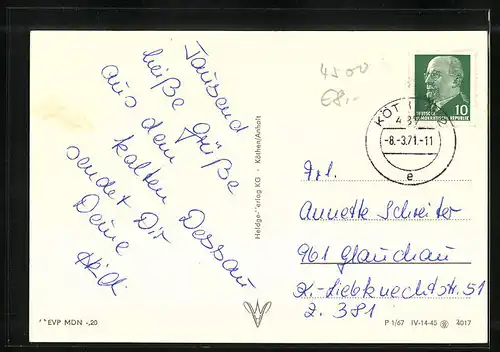 Tausend
heiße Grüße
aus dem
kalten Dessau
sendet Dir
Deine
Heldge-Verlag KG · Köthen/Anhalt
EVP MDN -,20
4500
€8,-
DEUTSCHE
DEMOKRATISCHE REPUBLIK
10
KÖT
-8.-3.71.-11
e
Frl.
Annette Schreiter
961 Glauchau
K.-Liebknechtstr. 51
Z. 381
P 1/67 IV-14-45 4017